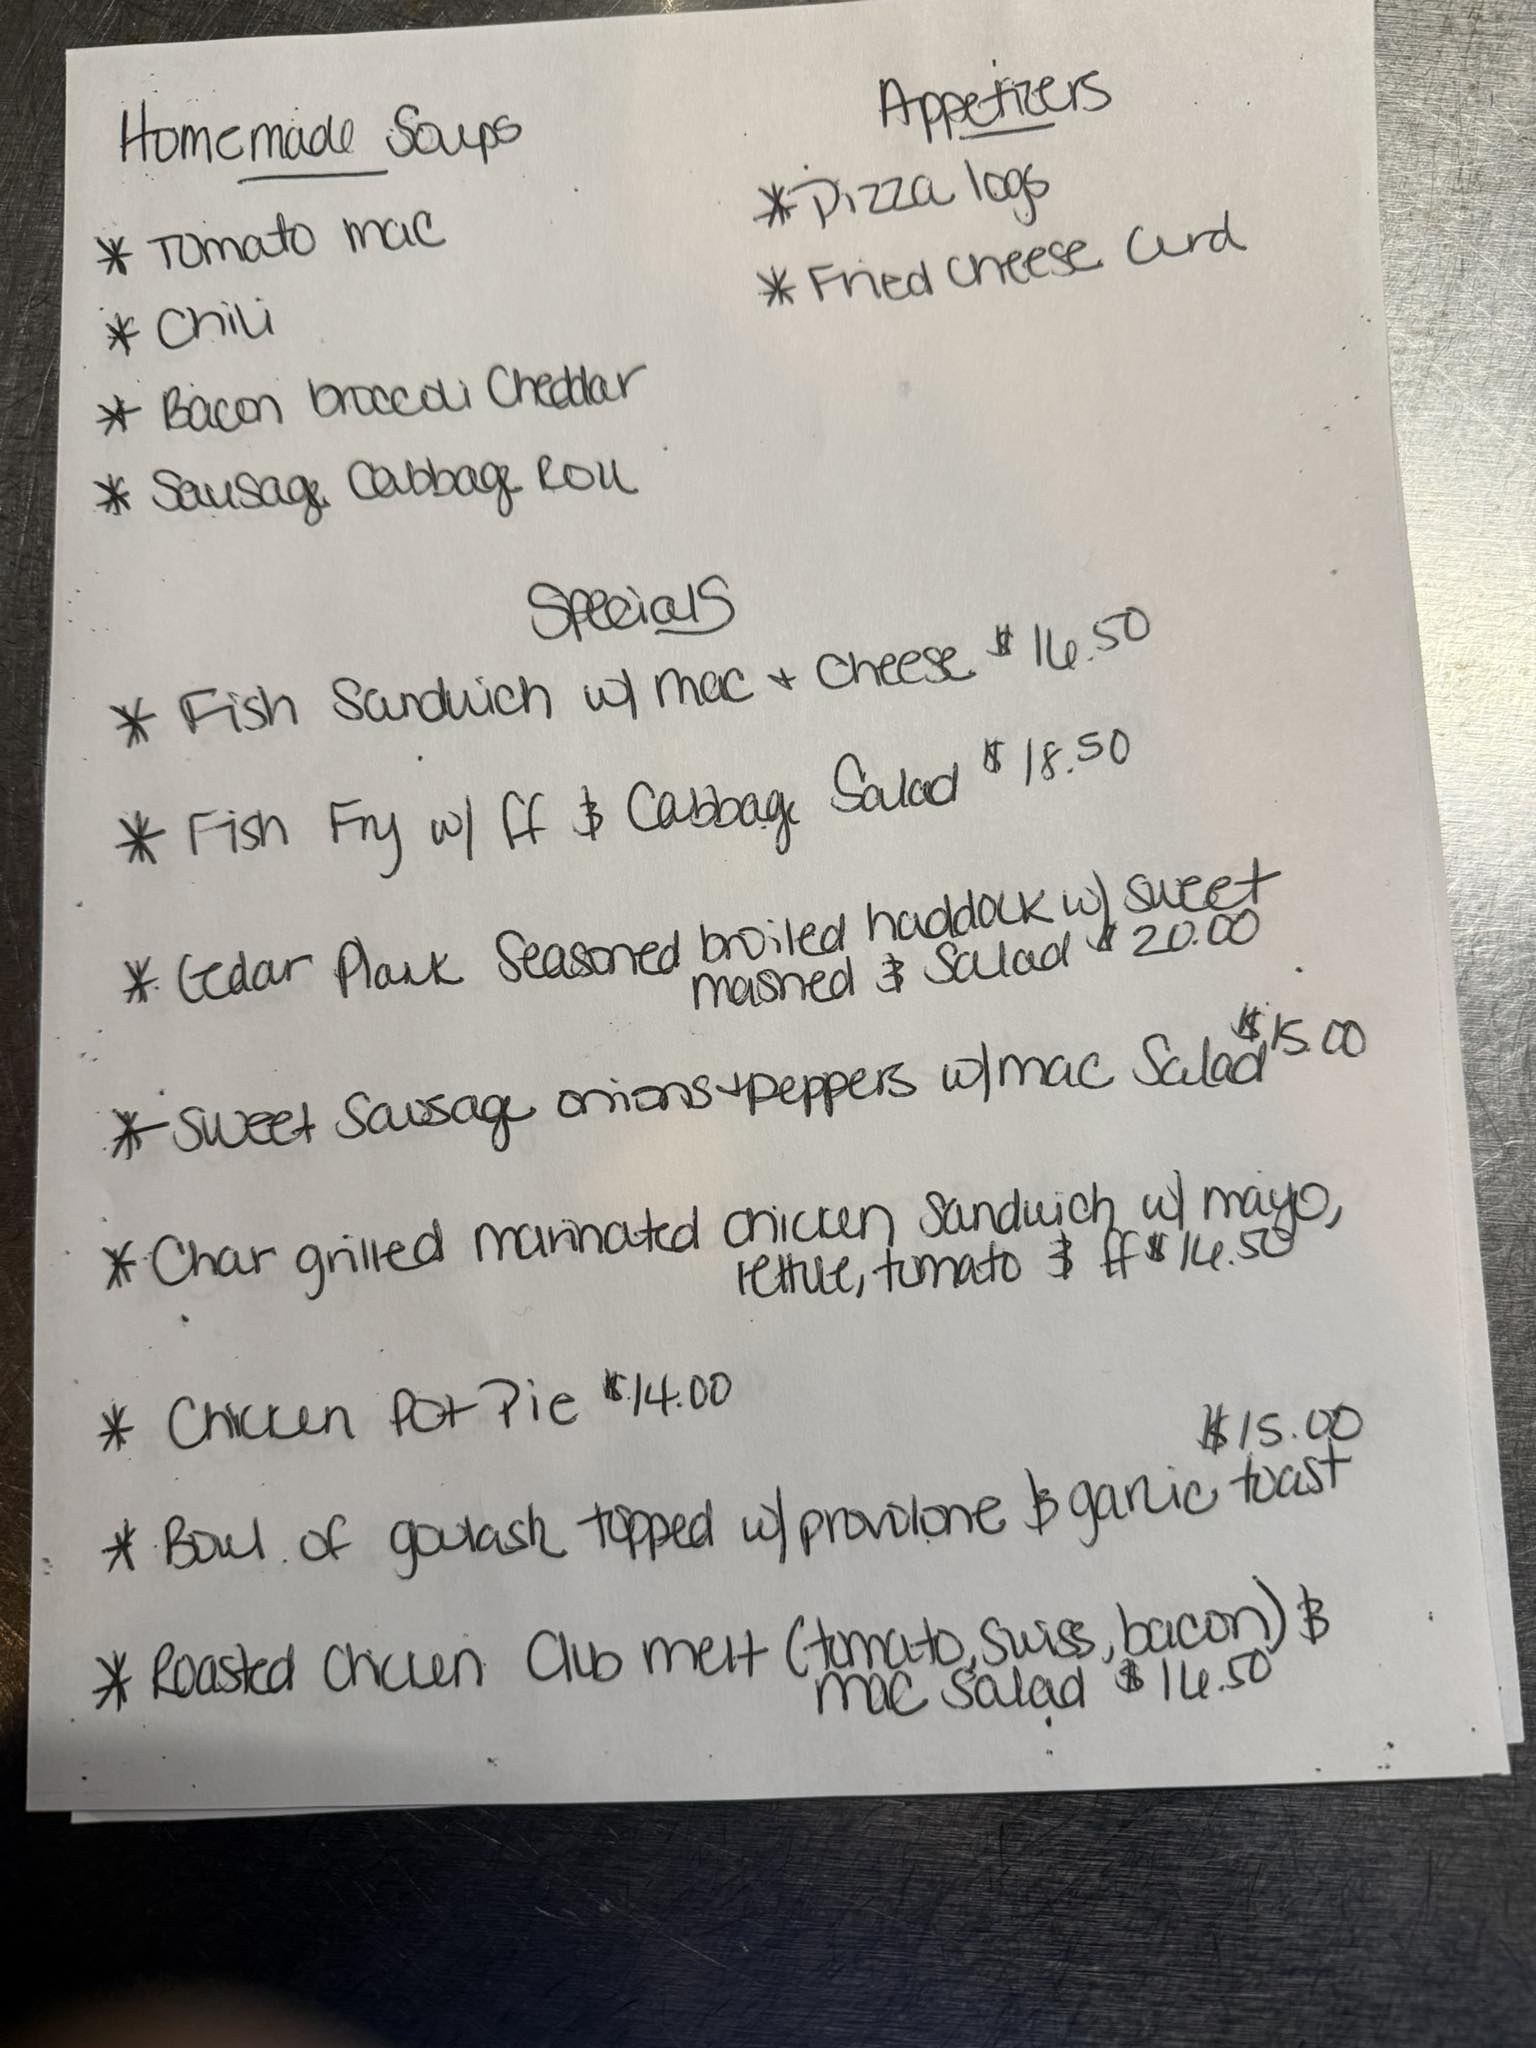 Homemade Soups
* Tomato mac
* Chili
* Bacon broccoli Cheddar
* Sausage Cabbage Roll
Appetizers
* Pizza logs
* Fried cheese curd
Specials
* Fish Sandwich w/ mac + cheese $16.50
* Fish Fry w/ ff & Cabbage Salad $18.50
* Cedar Plank Seasoned broiled haddock w/ sweet
mashed & Salad $20.00
* Sweet Sausage onions + peppers w/ mac Salad $15.00
* Char grilled marinated chicken Sandwich w/ mayo,
lettuce, tomato & ff $14.50
* Chicken Pot Pie $14.00
* Bowl of goulash topped w/ provolone & garlic toast $15.00
* Roasted Chicken Club melt (tomato, swiss, bacon) &
mac Salad $14.50